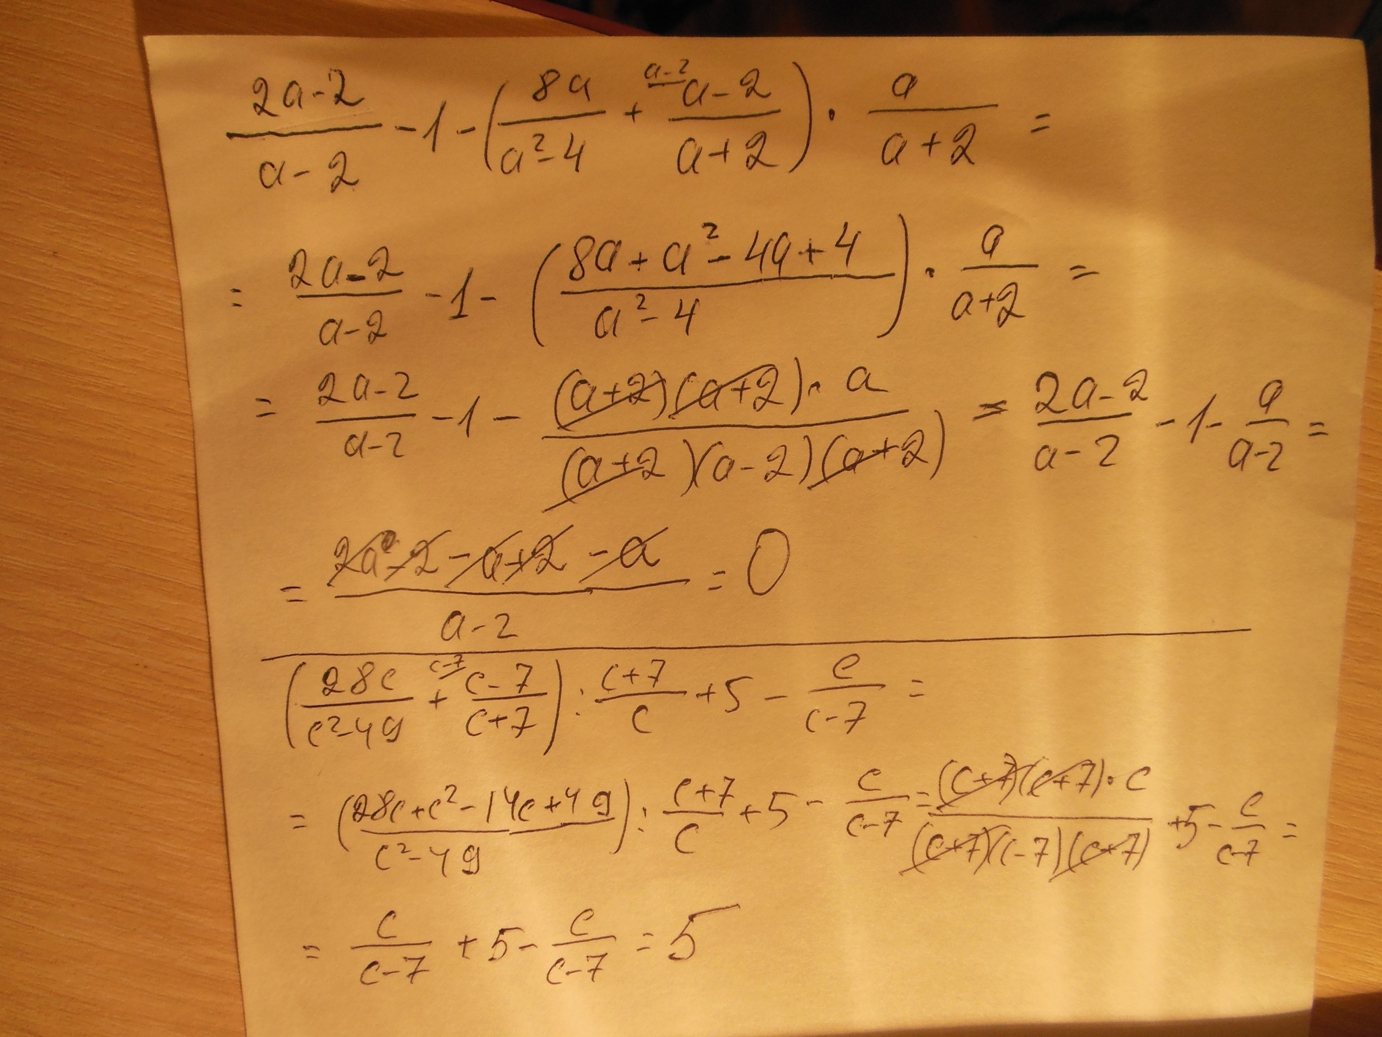 (2a-2)/(a-2) - 1 - (8a/(a²-4) + ᵃ⁻²(a-2)/(a+2)) · a/(a+2) =
= (2a-2)/(a-2) - 1 - ((8a+a²-4a+4)/(a²-4)) · a/(a+2) =
= (2a-2)/(a-2) - 1 - ((a+2)(a+2)·a)/((a+2)(a-2)(a+2)) = (2a-2)/(a-2) - 1 - a/(a-2) =
= (2a-2-a+2-a)/(a-2) = 0
(28c/(c²-49) + ᶜ⁻⁷(c-7)/(c+7)) : (c+7)/c + 5 - c/(c-7) =
= ((28c+c²-14c+49)/(c²-49)) : (c+7)/c + 5 - c/(c-7) = ((c+7)(c+7)·c)/((c+7)(c-7)(c+7)) + 5 - c/(c-7) =
= c/(c-7) + 5 - c/(c-7) = 5